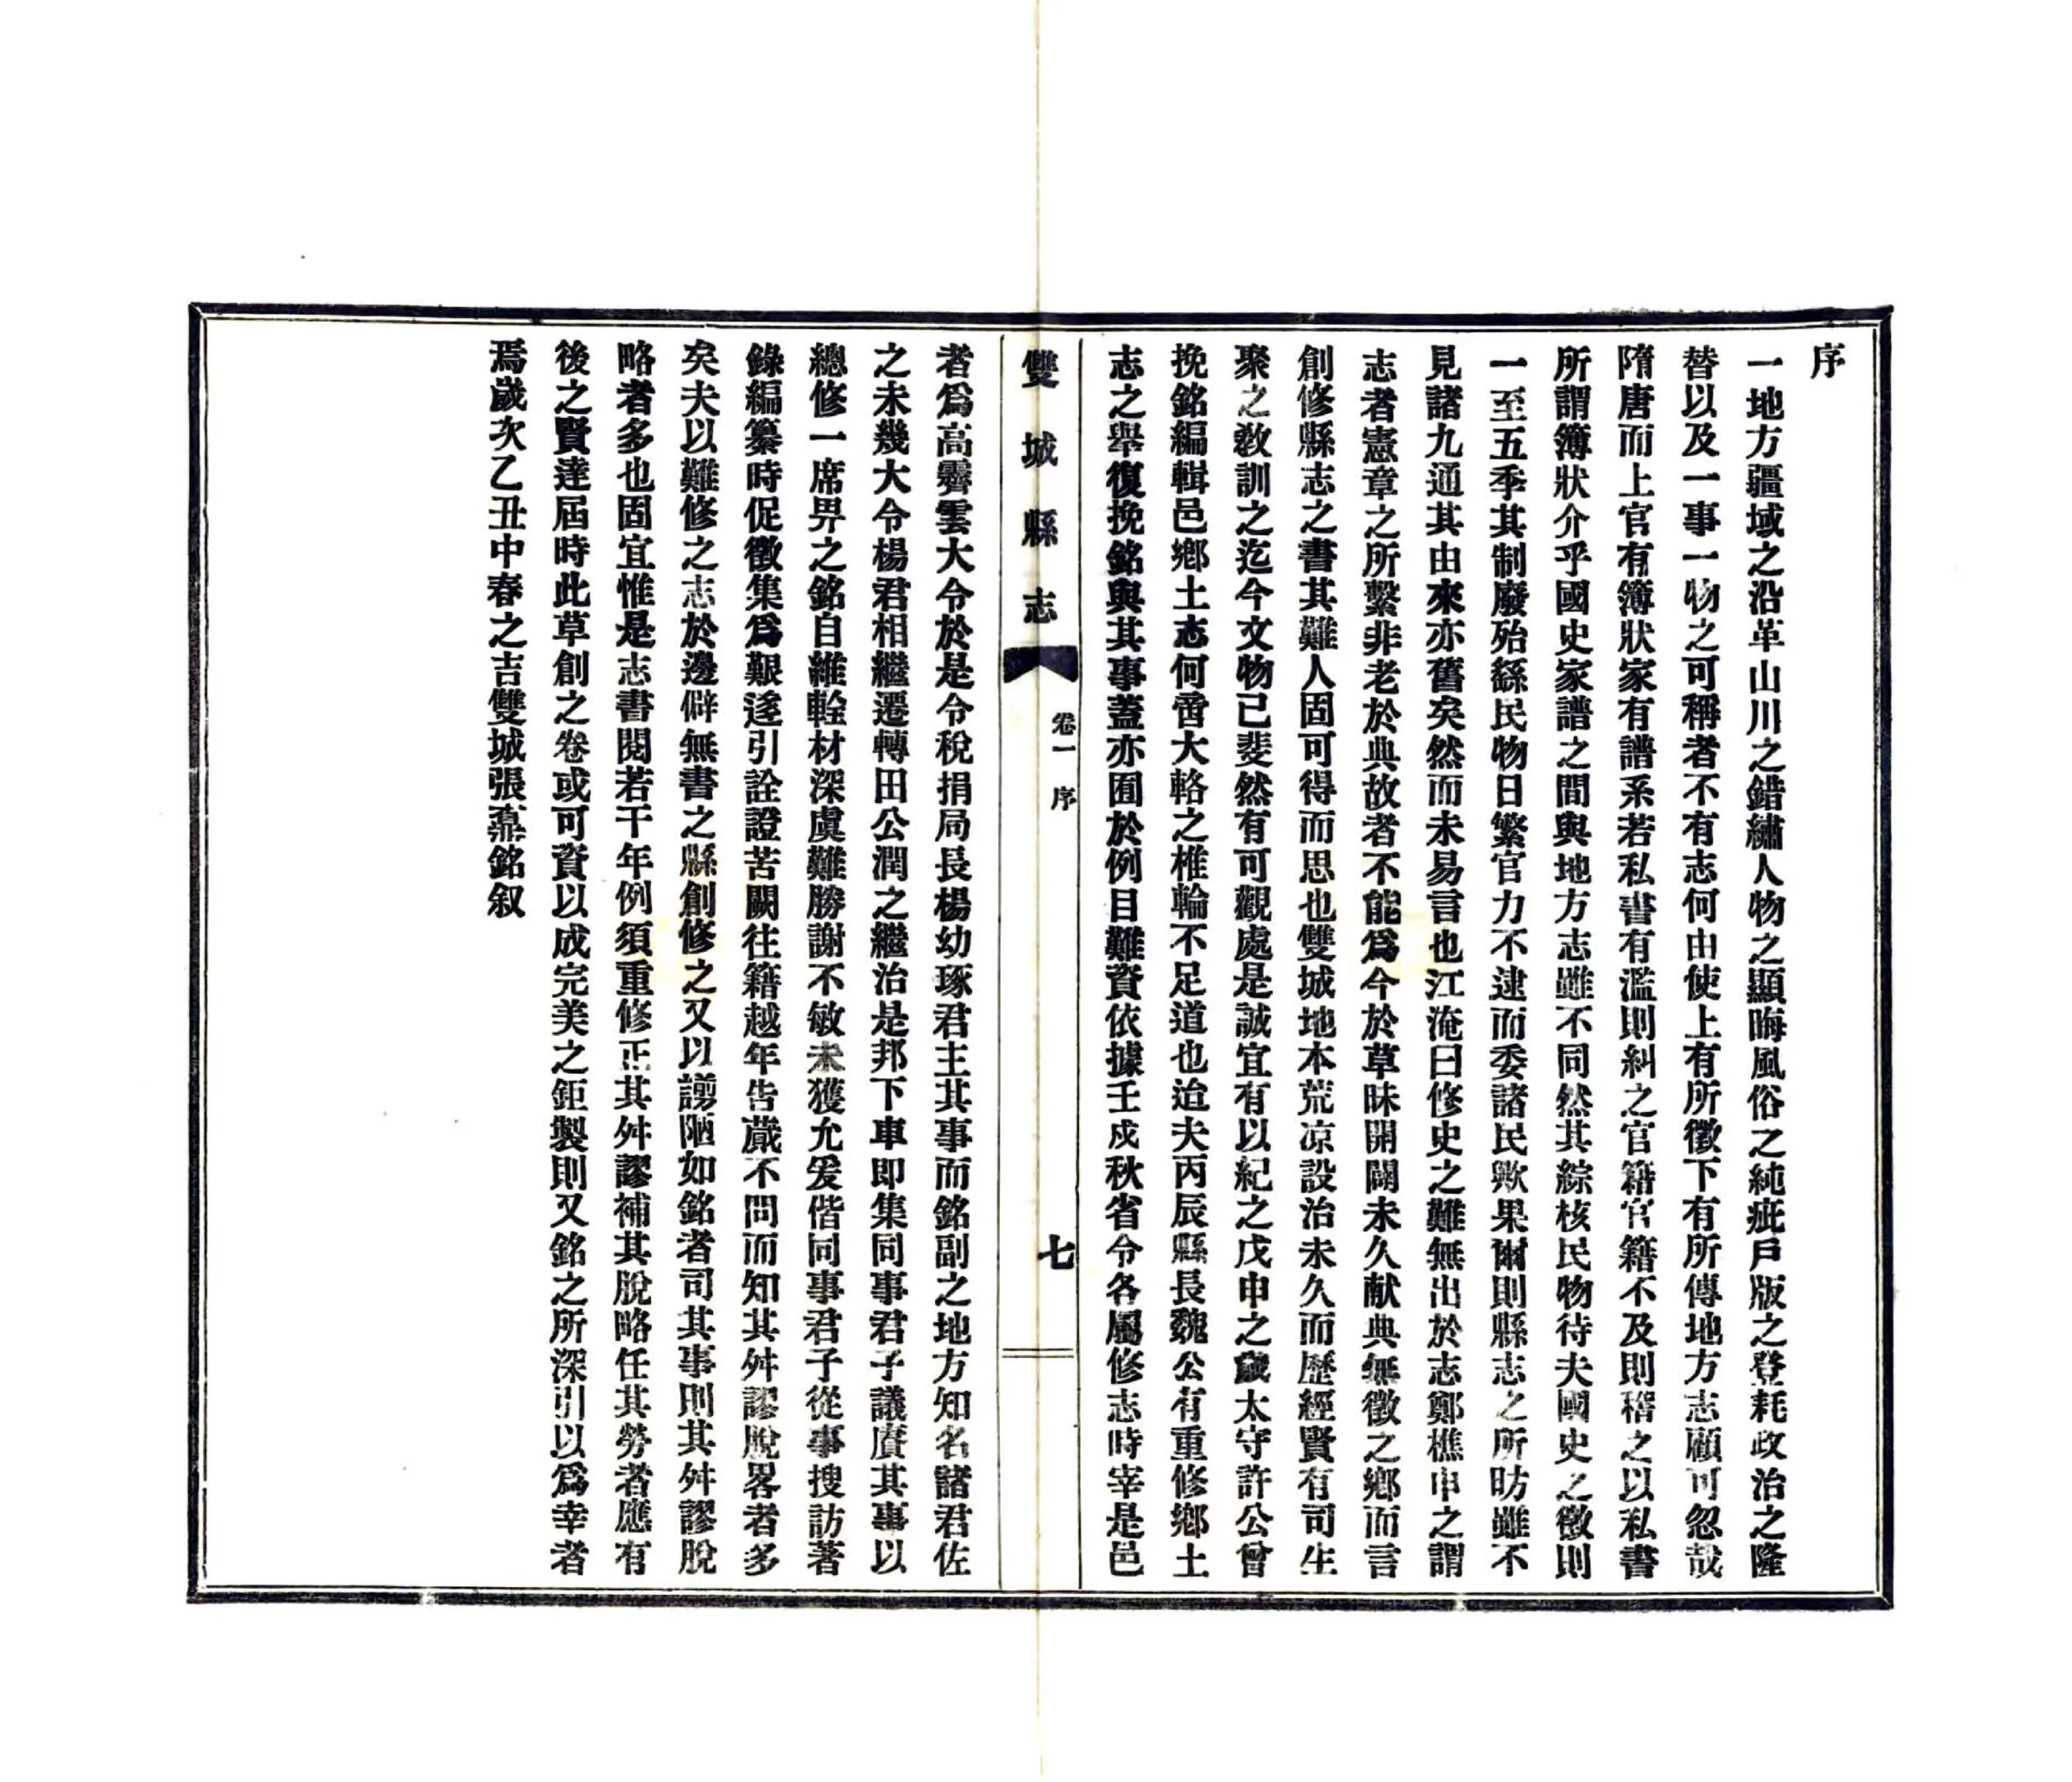 序
一地方疆域之沿革山川之錯繡人物之顯晦風俗之純疵戶版之登耗政治之隆
替以及一事一物之可稱者不有志何由使上有所徵下有所傳地方志顧可忽哉
隋唐而上官有簿狀家有譜系若私書有濫則糾之官籍官籍不及則稽之以私書
所謂簿狀介乎國史家譜之間與地方志雖不同然其綜核民物待夫國史之徵則
一至五季其制廢殆繇民物日繁官力不逮而委諸民歟果爾則縣志之所昉雖不
見諸九通其由來亦舊矣然而未易言也江淹曰修史之難無出於志鄭樵申之謂
志者憲章之所繫非老於典故者不能爲今於草昧開闢未久献典無徵之鄉而言
創修縣志之書其難人固可得而思也雙城地本荒凉設治未久而歷經賢有司生
聚之敎訓之迄今文物已斐然有可觀處是誠宜有以紀之戊申之歲太守許公曾
挽銘編輯邑鄉土志何啻大輅之椎輪不足道也迨夫丙辰縣長魏公有重修鄉土
志之舉復挽銘與其事蓋亦囿於例目難資依據壬戍秋省令各屬修志時宰是邑
雙城縣志
卷一 序
七
者爲高霽雲大令於是令稅捐局長楊幼琢君主其事而銘副之地方知名諸君佐
之未幾大令楊君相繼遷轉田公潤之繼治是邦下車即集同事君子議賡其事以
總修一席畀之銘自維輇材深虞難勝謝不敏未獲允爰偕同事君子從事搜訪著
錄編纂時促徵集爲艱遂引詮證苦闕往籍越年告蕆不問而知其舛謬脫畧者多
矣夫以難修之志於邊僻無書之縣創修之又以謭陋如銘者司其事則其舛謬脫
略者多也固宜惟是志書閱若干年例須重修正其舛謬補其脫略任其勞者應有
後之賢達屆時此草創之卷或可資以成完美之鉅製則又銘之所深引以爲幸者
焉歲次乙丑中春之吉雙城張鼐銘叙